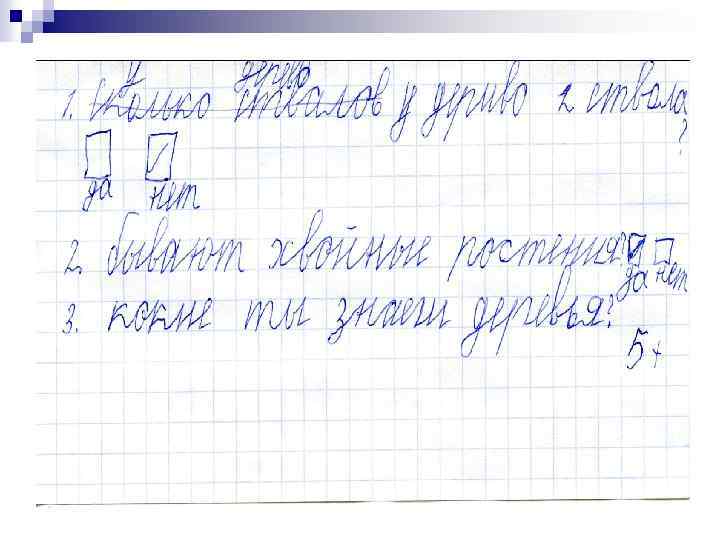 у дерево
1. Сколько стволов у дериво 2 ствола
?
да нет
2. бывают хвойные ростения?
да нет
3. кокие ты знаеш деревья?
5+